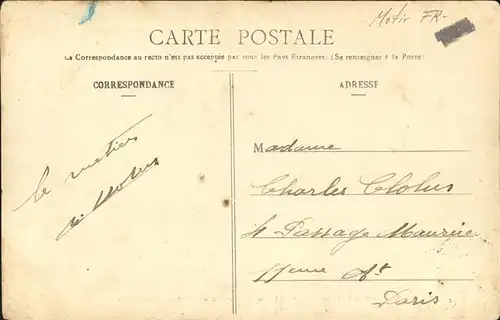 Motiv FR-
CARTE POSTALE
La Correspondance au recto n'est pas acceptée par tous les Pays Étrangers. (Se renseigner à la Poste)
CORRESPONDANCE
le metier
de Clolus
ADRESSE
Madame
Charles Clolus
4 Passage Maurice
11eme At
Paris